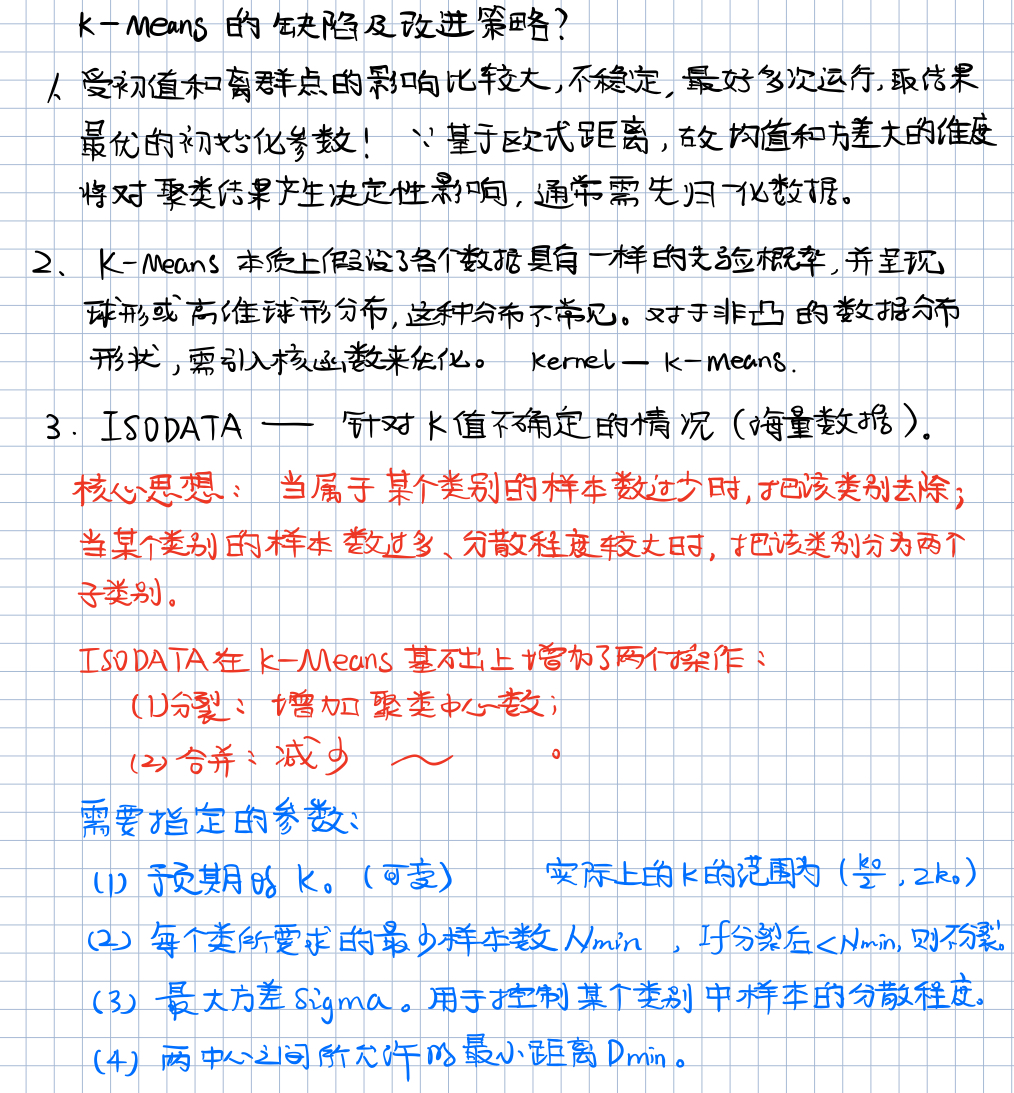 K-Means 的缺陷及改进策略?
1. 受初值和离群点的影响比较大,不稳定,最好多次运行,取结果
最优的初始化参数! ∵基于欧式距离,故均值和方差大的维度
将对聚类结果产生决定性影响,通常需先归一化数据。
2、K-Means 本质上假设了各个数据具有一样的先验概率,并呈现
球形或高维球形分布,这种分布不常见。对于非凸的数据分布
形状,需引入核函数来优化。 Kernel — K-means.
3. ISODATA —— 针对K值不确定的情况(海量数据)。
核心思想: 当属于某个类别的样本数过少时,把该类别去除;
当某个类别的样本数过多、分散程度较大时,把该类别分为两个
子类别。
ISODATA在K-Means基础上增加了两个操作:
(1)分裂:增加聚类中心数;
(2)合并:减少 ~ 。
需要指定的参数:
(1) 预期的 K₀ (可变) 实际上的K的范围为 (k₀/2, 2k₀)
(2) 每个类所要求的最少样本数 Nmin , If分裂后<Nmin, 则不分裂。
(3) 最大方差 Sigma。用于控制某个类别中样本的分散程度。
(4) 两中心之间所允许的最小距离 Dmin。